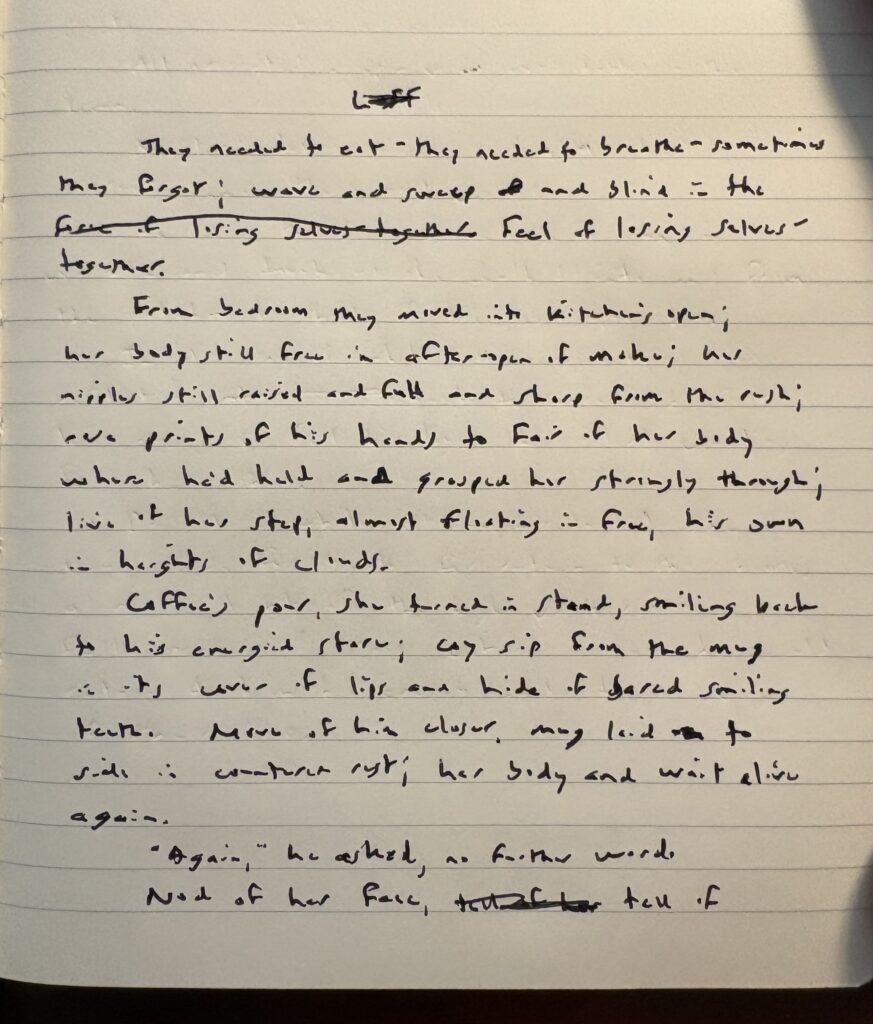 They needed to eat - they needed to breathe - sometimes
they forgot; wave and sweep and blind in the
Face of losing selves-together Feel of losing selves-
together.
From bedroom they moved into kitchen's open;
her body still free in after-open of make; her
nipples still raised and full and sharp from the rush;
prints of his hands to Fair of her body
where he'd held and grasped her strongly through;
live of her step, almost floating in free, his own
in heights of clouds.
Coffee's pour, she turned in stand, smiling back
to his energied stare; coy sip from the mug
in its cover of lips and hide of bared smiling
teeth. Move of him closer, mug laid to
side in counter's rest; her body and wait alive
again.
"Again," he asked, no further word.
Nod of her face, tell of her tell of